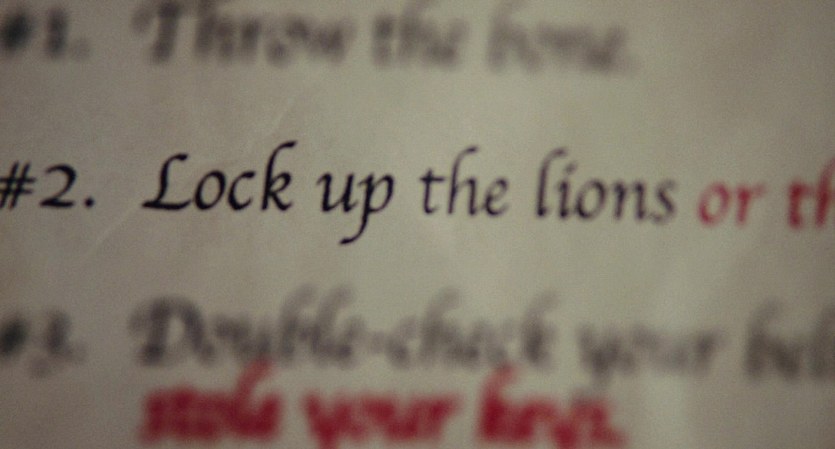 #1. Throw the bone.
#2. Lock up the lions or th
#3. Double-check your bel
stole your keys.